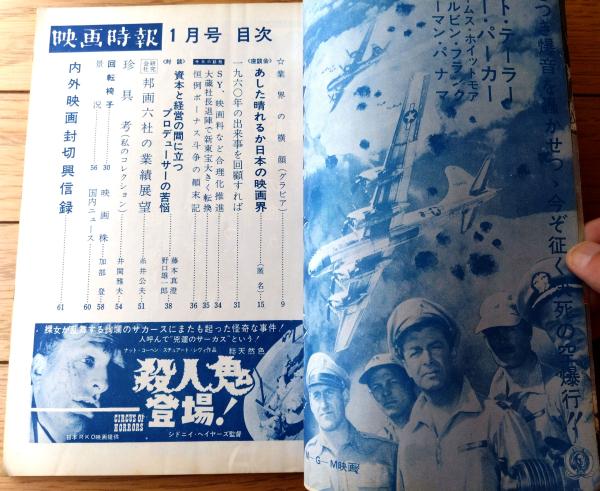 映画時報 1月号 目次
☆業界の横顔(グラビア) 9
<座談会> あした晴れるか日本の映画界 (匿名) 15
一九六〇年の出来事を回顧すれば 31
SY、映画料など合理化推進 34
大蔵社長退陣で新東宝大きく転換 35
恒例ボーナス斗争の顛末記 36
<対談> 資本と経営の間に立つ
プロデューサーの苦悩 藤本真澄 野口雄一郎 38
研究会社 邦画六社の業績展望 糸井公夫 51
珍具考(私のコレクション) 井関雅夫 54
回転椅子 30 映画株 加部登 58
景況 56 国内ニュース 60
内外映画封切興信録 61
裸女が乱舞する絢爛のサーカスにまたも起った怪奇な事件!
人呼んで"兇運のサーカス"という!
ナット・コーヘン スチュアート・レヴィ作品 総天然色
殺人鬼登場!
CIRCUS OF HORRORS
日本RKO映画提供 シドニイ・ヘイヤーズ監督
ト・テーラー
ー・パーカー
ームス・ホイットモア
ルビン・フランク
ーマン・パナマ
M-G-M映画